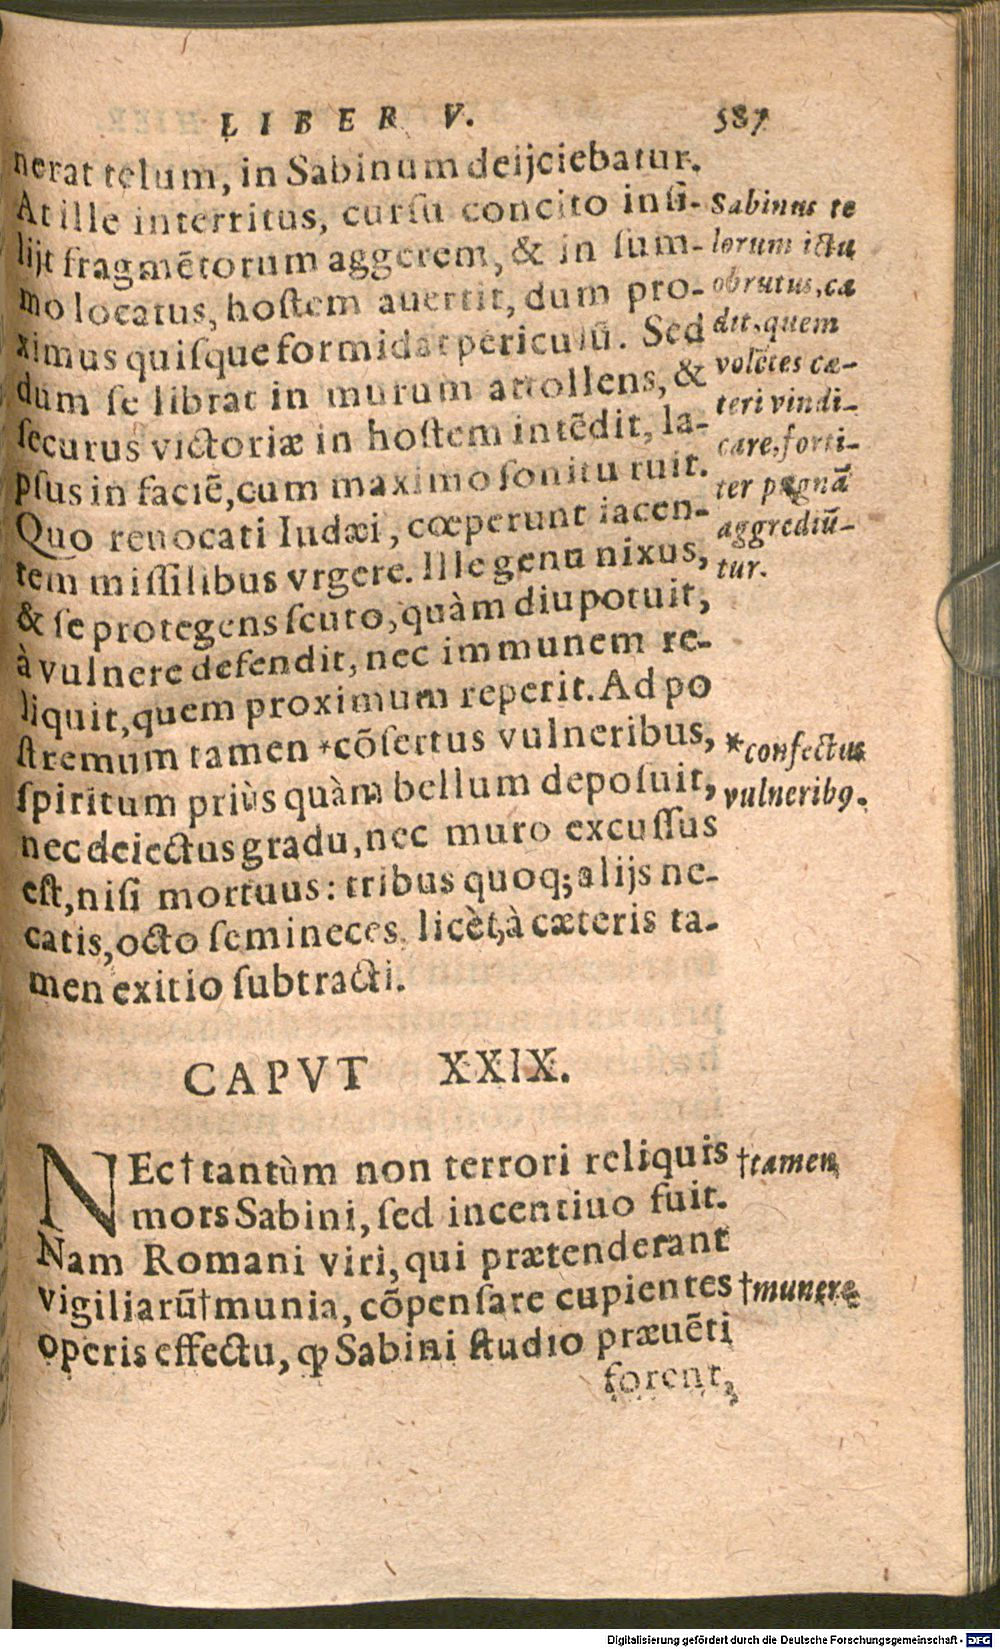 LIBER V. 587
nerat telum, in Sabinum deijciebatur.
At ille interritus, cursu concito insi-
lijt fragmẽtorum aggerem, & in sum-
mo locatus, hostem auertit, dum pro-
ximus quisque formidat periculũ. Sed
dum se librat in murum attollens, &
securus victoriæ in hostem intẽdit, la-
psus in faciẽ, cum maximo sonitu ruit.
Quo reuocati Iudæi, cœperunt iacen-
tem missilibus vrgere. Ille genu nixus,
& se protegens scuto, quàm diu potuit,
à vulnere defendit, nec immunem re-
liquit, quem proximum reperit. Ad po
stremum tamen *cõsertus vulneribus,
spiritum priùs quàm bellum deposuit,
nec deiectus gradu, nec muro excussus
est, nisi mortuus: tribus quoq; alijs ne-
catis, octo semineces, licèt, à cæteris ta-
men exitio subtracti.
Sabinus te
lorum ictu
obrutus, ca
dit, quem
volẽtes cæ-
teri vindi-
care, forti-
ter pugnã
aggrediũ-
tur.
*confectus
vulneribꝰ.
CAPVT XXIX.
NEc†tantùm non terrori reliquis
mors Sabini, sed incentiuo fuit.
Nam Romani viri, qui prætenderant
vigiliarũ†munia, cõpensare cupientes
operis effectu, ꝙ Sabini studio præuẽti
forent,
†tamen
†munere
Digitalisierung gefördert durch die Deutsche Forschungsgemeinschaft - DFG